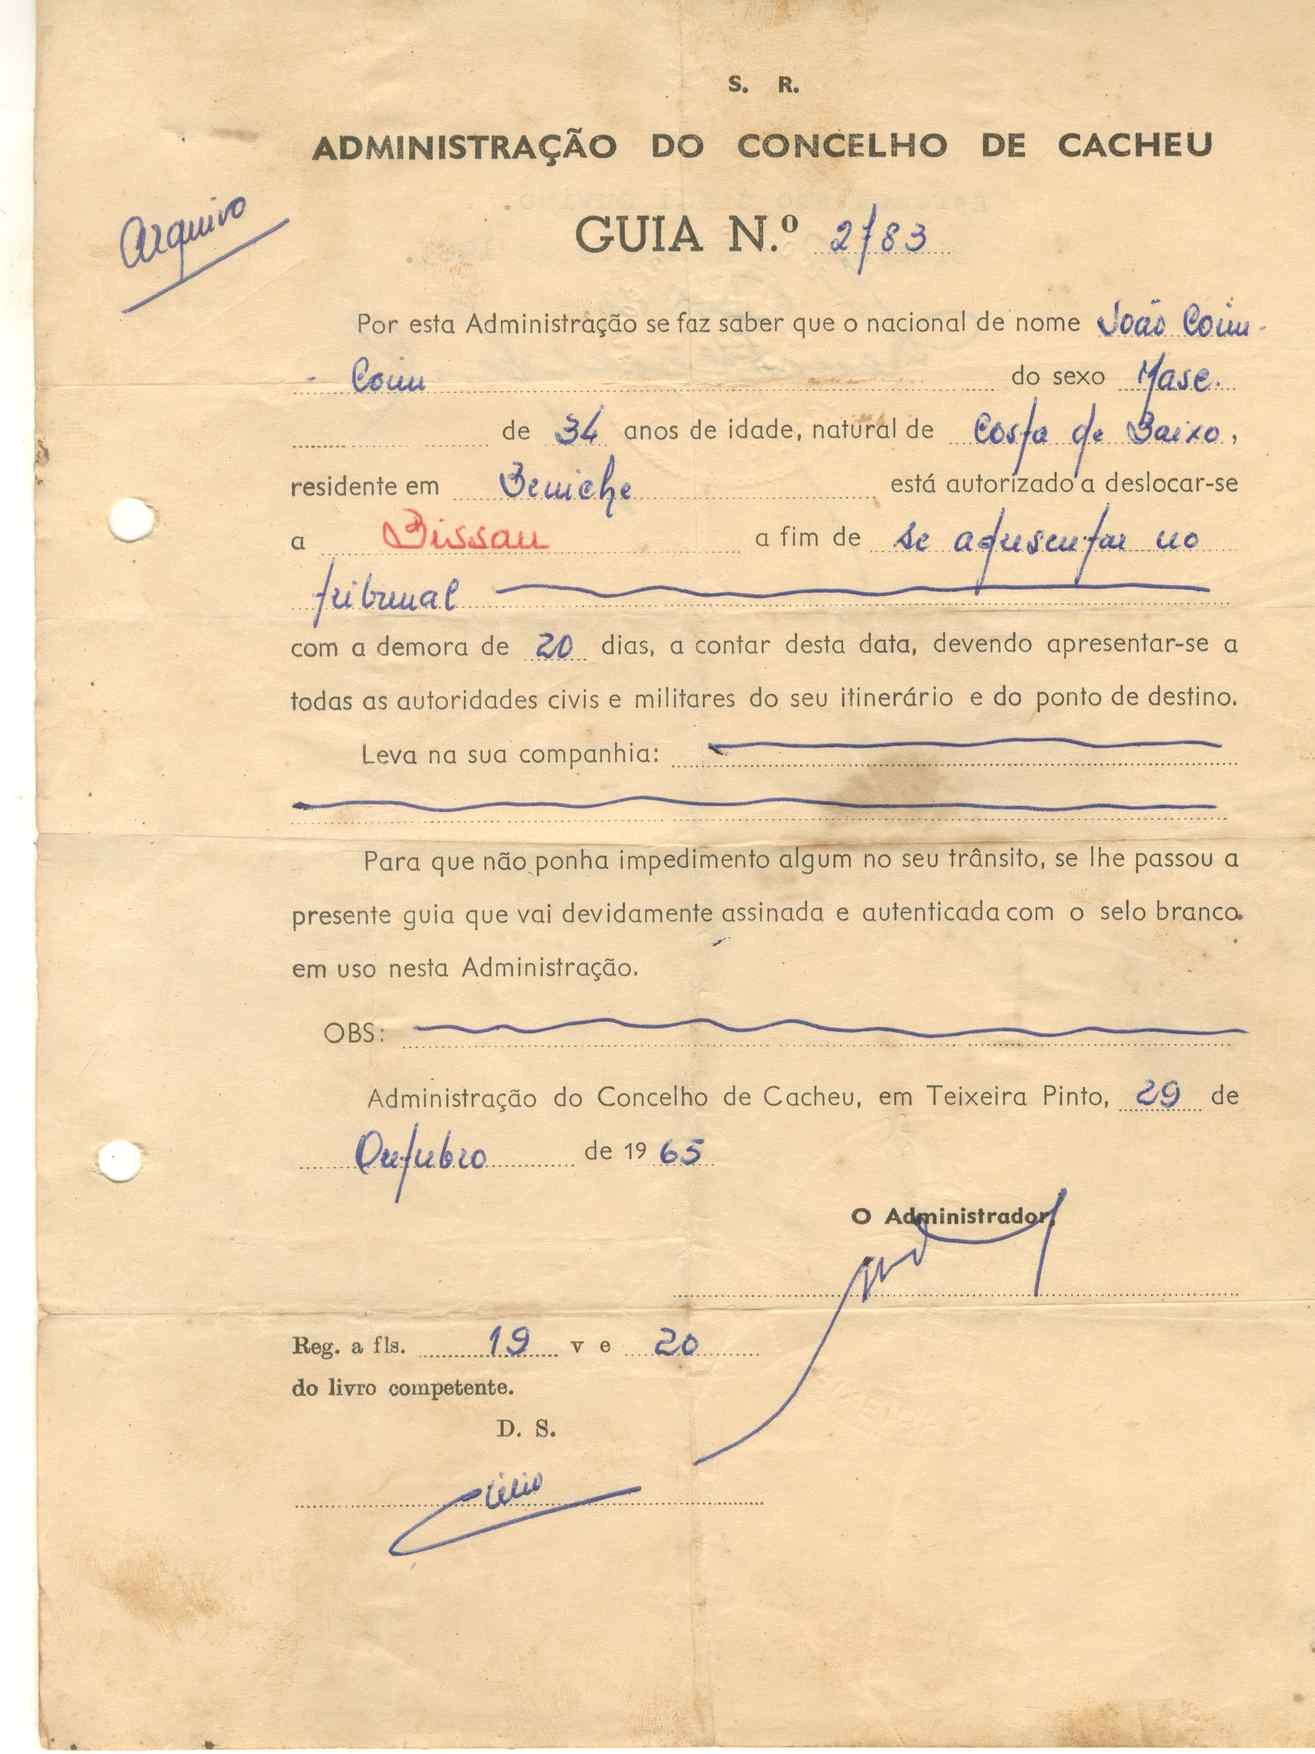 S. R.
ADMINISTRAÇÃO DO CONCELHO DE CACHEU
Arquivo
GUIA N.º 2/83
Por esta Administração se faz saber que o nacional de nome João Coim-
- Coim do sexo Masc.
de 34 anos de idade, natural de Costa de Baixo,
residente em Beniche está autorizado a deslocar-se
a Bissau a fim de se apresentar no
tribunal
com a demora de 20 dias, a contar desta data, devendo apresentar-se a
todas as autoridades civis e militares do seu itinerário e do ponto de destino.
Leva na sua companhia:
Para que não ponha impedimento algum no seu trânsito, se lhe passou a
presente guia que vai devidamente assinada e autenticada com o selo branco
em uso nesta Administração.
OBS:
Administração do Concelho de Cacheu, em Teixeira Pinto, 29 de
Outubro de 19 65
O Administrador,
Reg. a fls. 19 v e 20
do livro competente.
D. S.